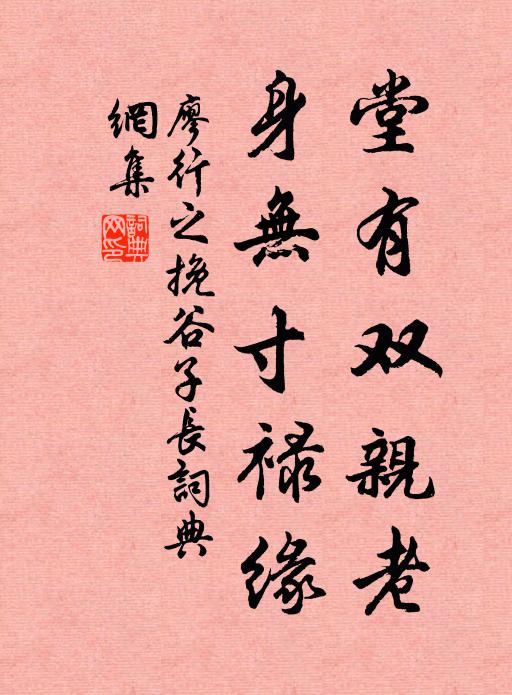 堂有双親老
身無寸禄緣
廖行之挽谷子長詞典
網集
詞典網印